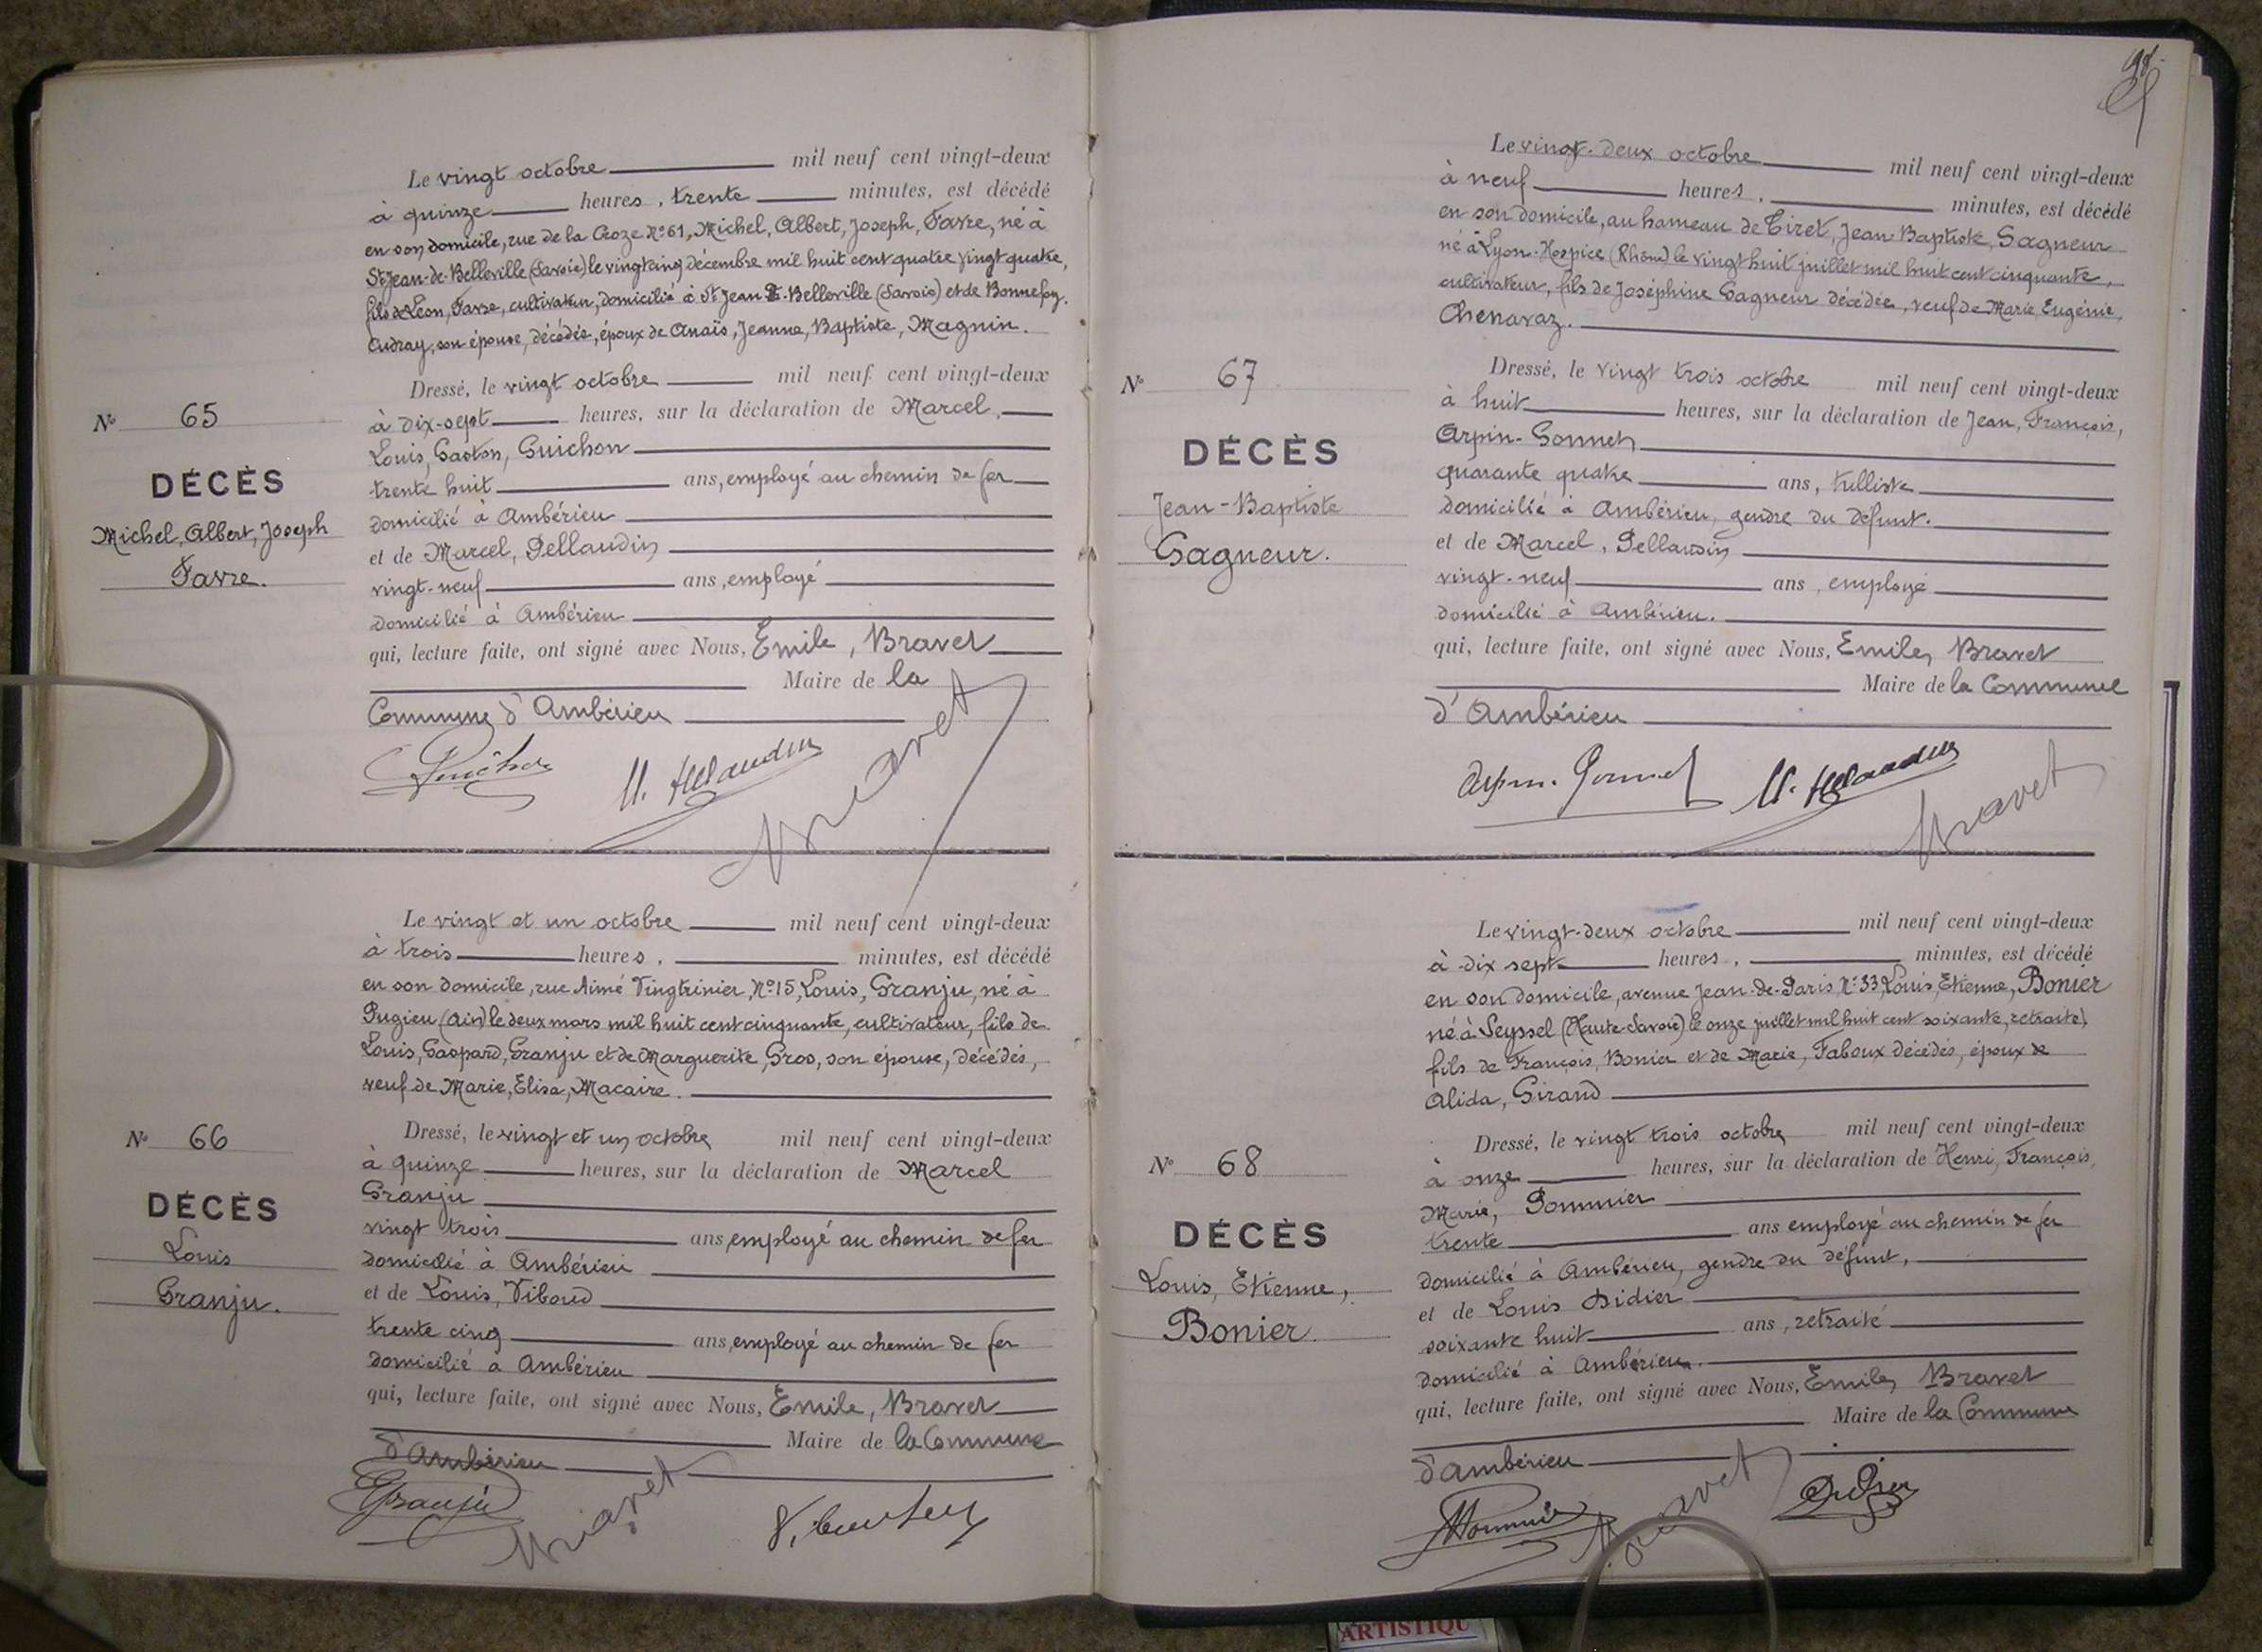 Le vingt octobre mil neuf cent vingt-deux
à quinze heures, trente minutes, est décédé
en son domicile, rue de la Croze N° 61, Michel, Albert, Joseph, Favre, né à
St Jean-de-Belleville (Savoie) le vingt cinq décembre mil huit cent quatre vingt quatre,
fils de Léon, Favre, cultivateur, domicilié à St Jean de Belleville (Savoie) et de Bonnefoy.
Cudray, son épouse, décédée, époux de Anaïs, Jeanne, Baptiste, Magnin.
Dressé, le vingt octobre mil neuf cent vingt-deux
à dix-sept heures, sur la déclaration de Marcel,
Louis, Gaston, Guichon
trente huit ans, employé au chemin de fer
domicilié à Ambérieu
et de Marcel, Pellaudin
vingt-neuf ans, employé
domicilié à Ambérieu
qui, lecture faite, ont signé avec Nous, Emile, Bravet
Maire de la
Commune d'Ambérieu
N° 65
DÉCÈS
Michel, Albert, Joseph
Favre.
Guichon M. Pellaudin Bravet
Le vingt et un octobre mil neuf cent vingt-deux
à trois heures, minutes, est décédé
en son domicile, rue Aimé Vingtrinier, N° 15, Louis, Granju, né à
Pugieu (Ain) le deux mars mil huit cent cinquante, cultivateur, fils de
Louis, Gaspard, Granju et de Marguerite, Gros, son épouse, décédés,
veuf de Marie, Elisa, Macaire.
Dressé, le vingt et un octobre mil neuf cent vingt-deux
à quinze heures, sur la déclaration de Marcel
Granju
vingt trois ans, employé au chemin de fer
domicilié à Ambérieu
et de Louis, Viboud
trente cinq ans, employé au chemin de fer
domicilié à Ambérieu
qui, lecture faite, ont signé avec Nous, Emile, Bravet
Maire de la Commune
d'Ambérieu
N° 66
DÉCÈS
Louis
Granju.
Granju Bravet
Le vingt-deux octobre mil neuf cent vingt-deux
à neuf heures, minutes, est décédé
en son domicile, au hameau de Tiret, Jean Baptiste, Gagneur
né à Lyon-Hospice (Rhône) le vingt huit juillet mil huit cent cinquante,
cultivateur, fils de Joséphine Gagneur décédée, veuf de Marie, Eugénie,
Chenavaz.
Dressé, le vingt trois octobre mil neuf cent vingt-deux
à huit heures, sur la déclaration de Jean, François,
Arpin-Gonnet
quarante quatre ans, tulliste
domicilié à Ambérieu, gendre du défunt.
et de Marcel, Pellaudin
vingt-neuf ans, employé
domicilié à Ambérieu.
qui, lecture faite, ont signé avec Nous, Emile, Bravet
Maire de la Commune
d'Ambérieu
N° 67
DÉCÈS
Jean-Baptiste
Gagneur.
Arpin-Gonnet M. Pellaudin Bravet
Le vingt-deux octobre mil neuf cent vingt-deux
à dix sept heures, minutes, est décédé
en son domicile, avenue Jean-de-Paris, N° 33, Louis, Etienne, Bonier
né à Seyssel (Haute-Savoie) le onze juillet mil huit cent soixante, retraité,
fils de François, Bonier et de Marie, Faboux décédés, époux de
Alida, Giraud
Dressé, le vingt trois octobre mil neuf cent vingt-deux
à onze heures, sur la déclaration de Henri, François,
Marie, Pommier
trente ans employé au chemin de fer
domicilié à Ambérieu, gendre du défunt,
et de Louis Didier
soixante huit ans, retraité
domicilié à Ambérieu.
qui, lecture faite, ont signé avec Nous, Emile, Bravet
Maire de la Commune
d'Ambérieu
N° 68
DÉCÈS
Louis, Etienne,
Bonier.
Pommier Bravet Didier
ARTISTIQU